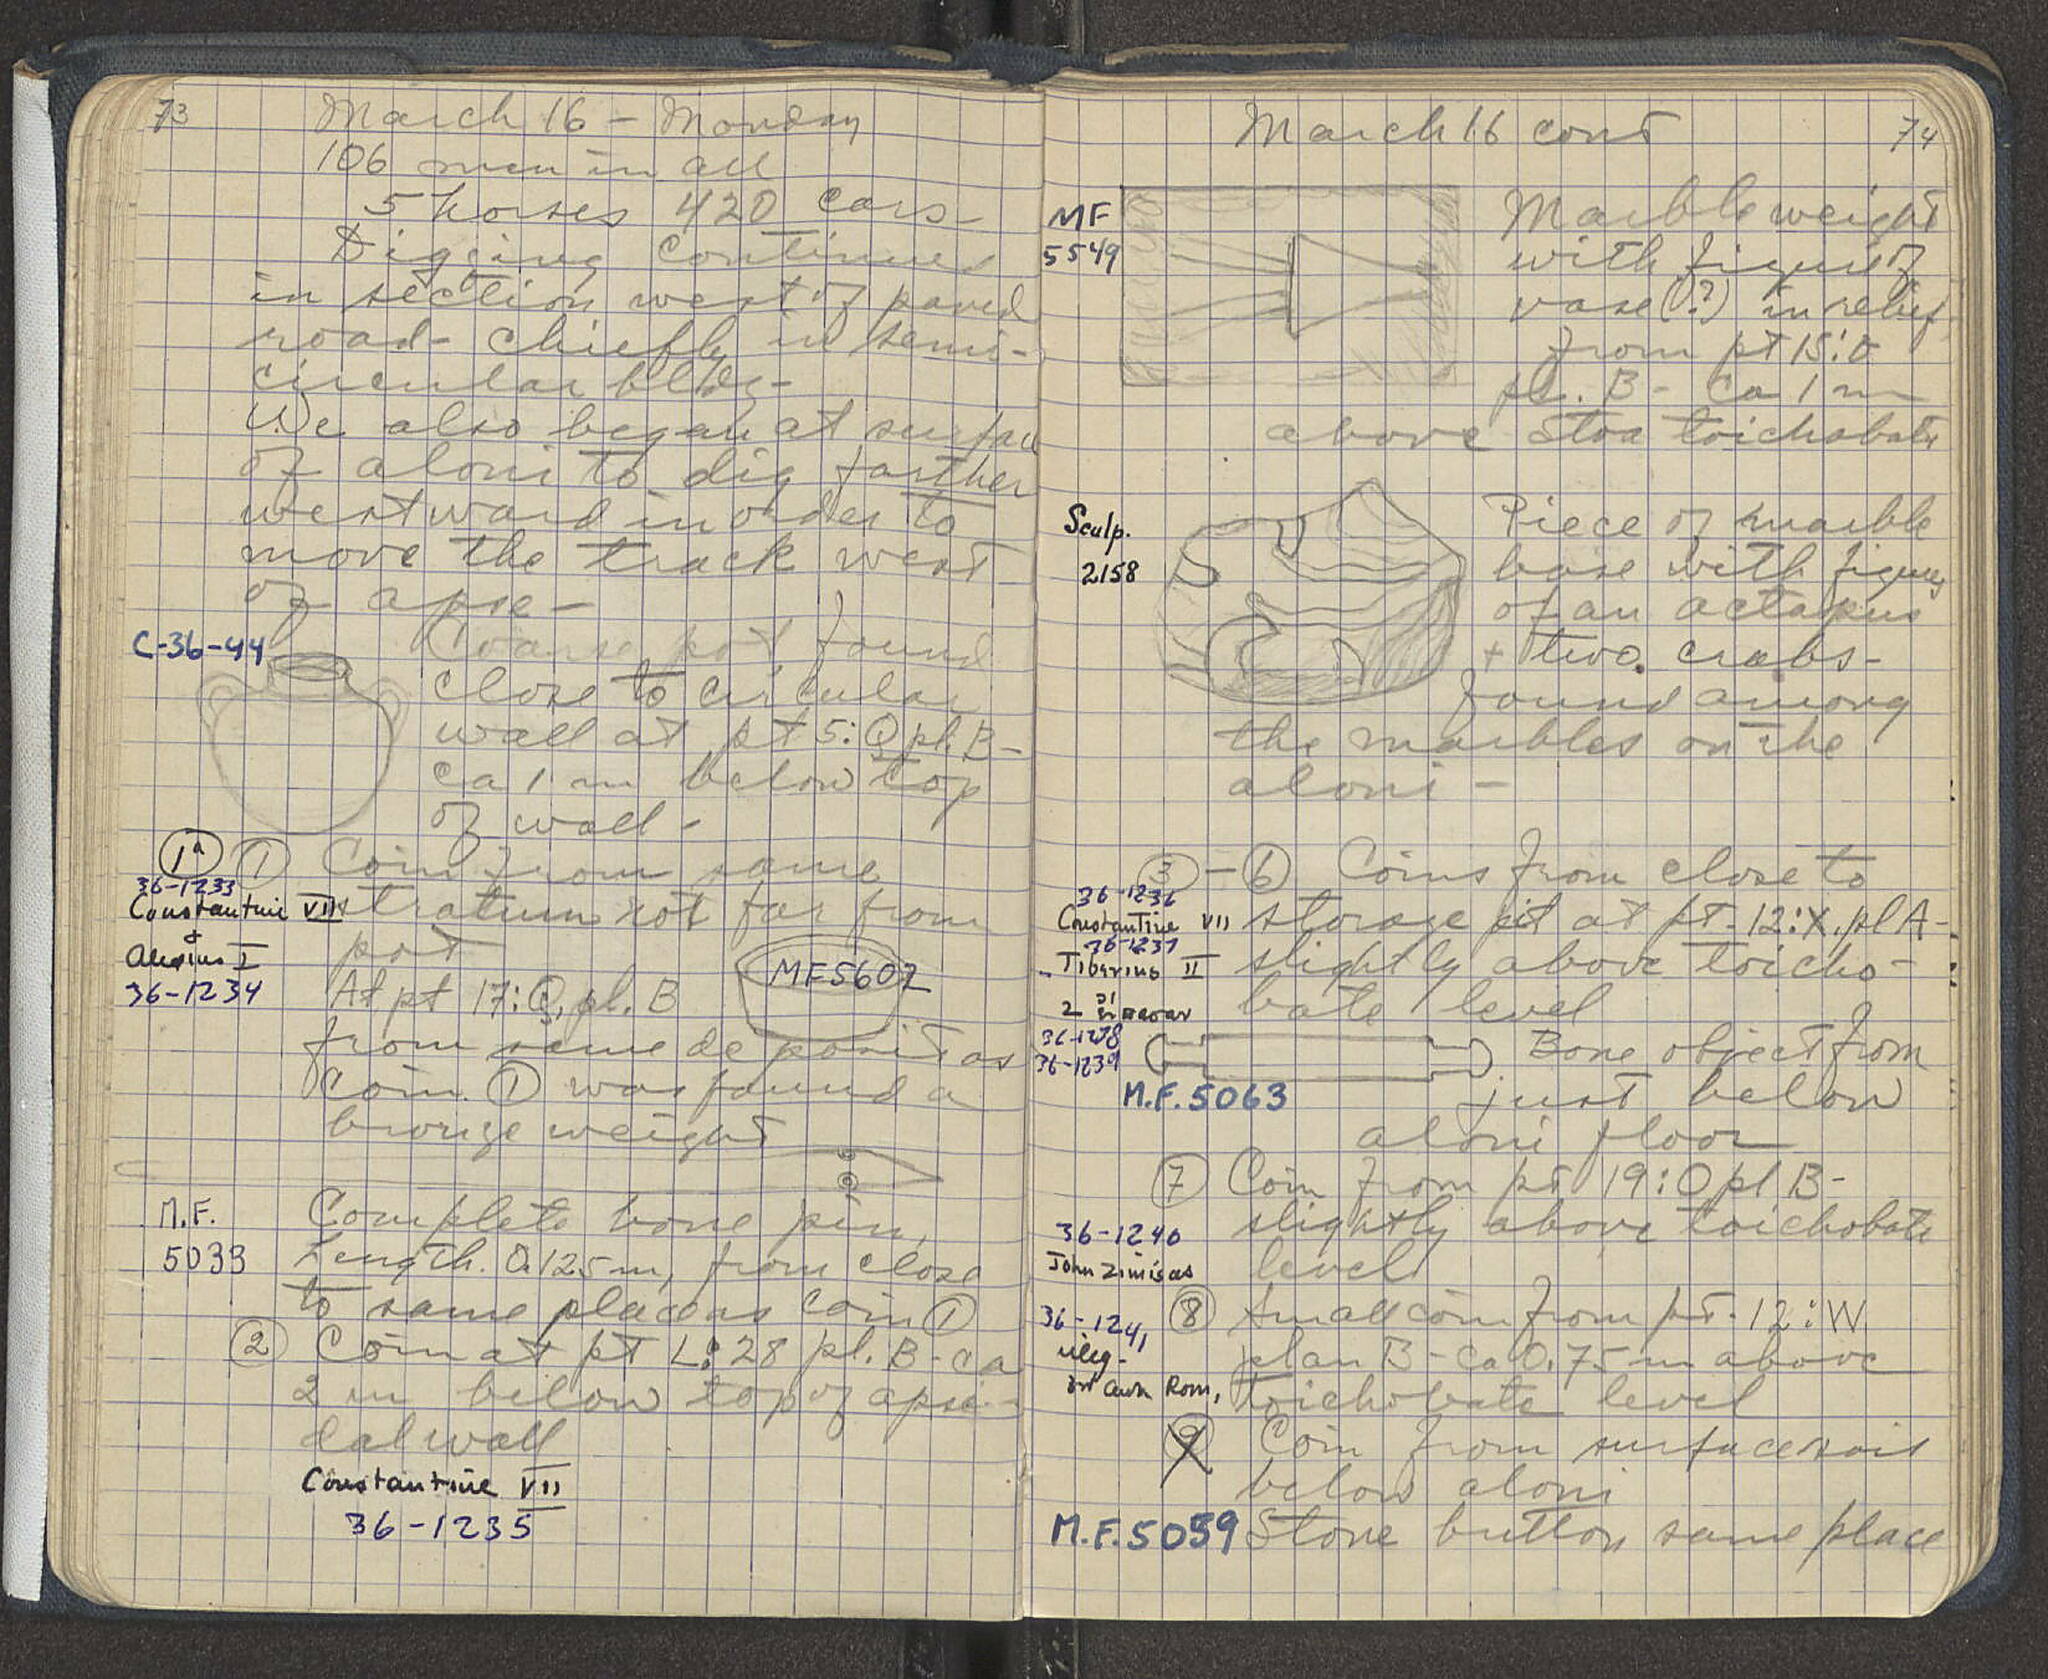 73
March 16 - Monday
106 men in all
5 horses 420 cars
Digging continues
in section west of paved
road - chiefly in semi-
circular bldg-
We also began at surface
of aloni to dig farther
westward in order to
move the track west
of apse -
C-36-44
Coarse pot found
close to circular
wall at pt 5:Q pl. B-
ca 1 m below top
of wall -
1a 1 Coin from same
36-1233
Constantine VII stratum not far from
& pot
Alexius I
36-1234
At pt 17:Q, pl. B
MF5602
from same deposit as
coin 1 was found a
bronze weight
M.F.
5033
Complete bone pin,
Length. 0.125 m, from close
to same place as coin 1
2 Coin at pt L:28 pl. B - ca
2 m below top of apsi-
dal wall
Constantine VII
36-1235
March 16 cont
74
MF
5549
Marble weight
with figure of
vase (?) in relief
from pt 15:O
pl. B - ca 1 m
above Stoa toichobate
Sculp.
2158
Piece of marble
base with figures
of an octapus
+ two crabs-
found among
the marbles on the
aloni -
3 - 6 Coins from close to
36-1236
Constantine VII storage pit at pt. 12:X, pl A-
36-1237
Tiberius II slightly above toicho-
bate level
2
36-1238
36-1239
Bone object from
M.F. 5063
just below
aloni floor
7 Coin from pt 19:O pl B-
slightly above toichobate
36-1240
John Zimisces level
36-1241 8 Small coin from pt. 12:W
illeg-
plan B - ca 0.75 m above
Rom, toichobate level
9 Coin from surface soil
below aloni
M.F. 5059 Stone button same place